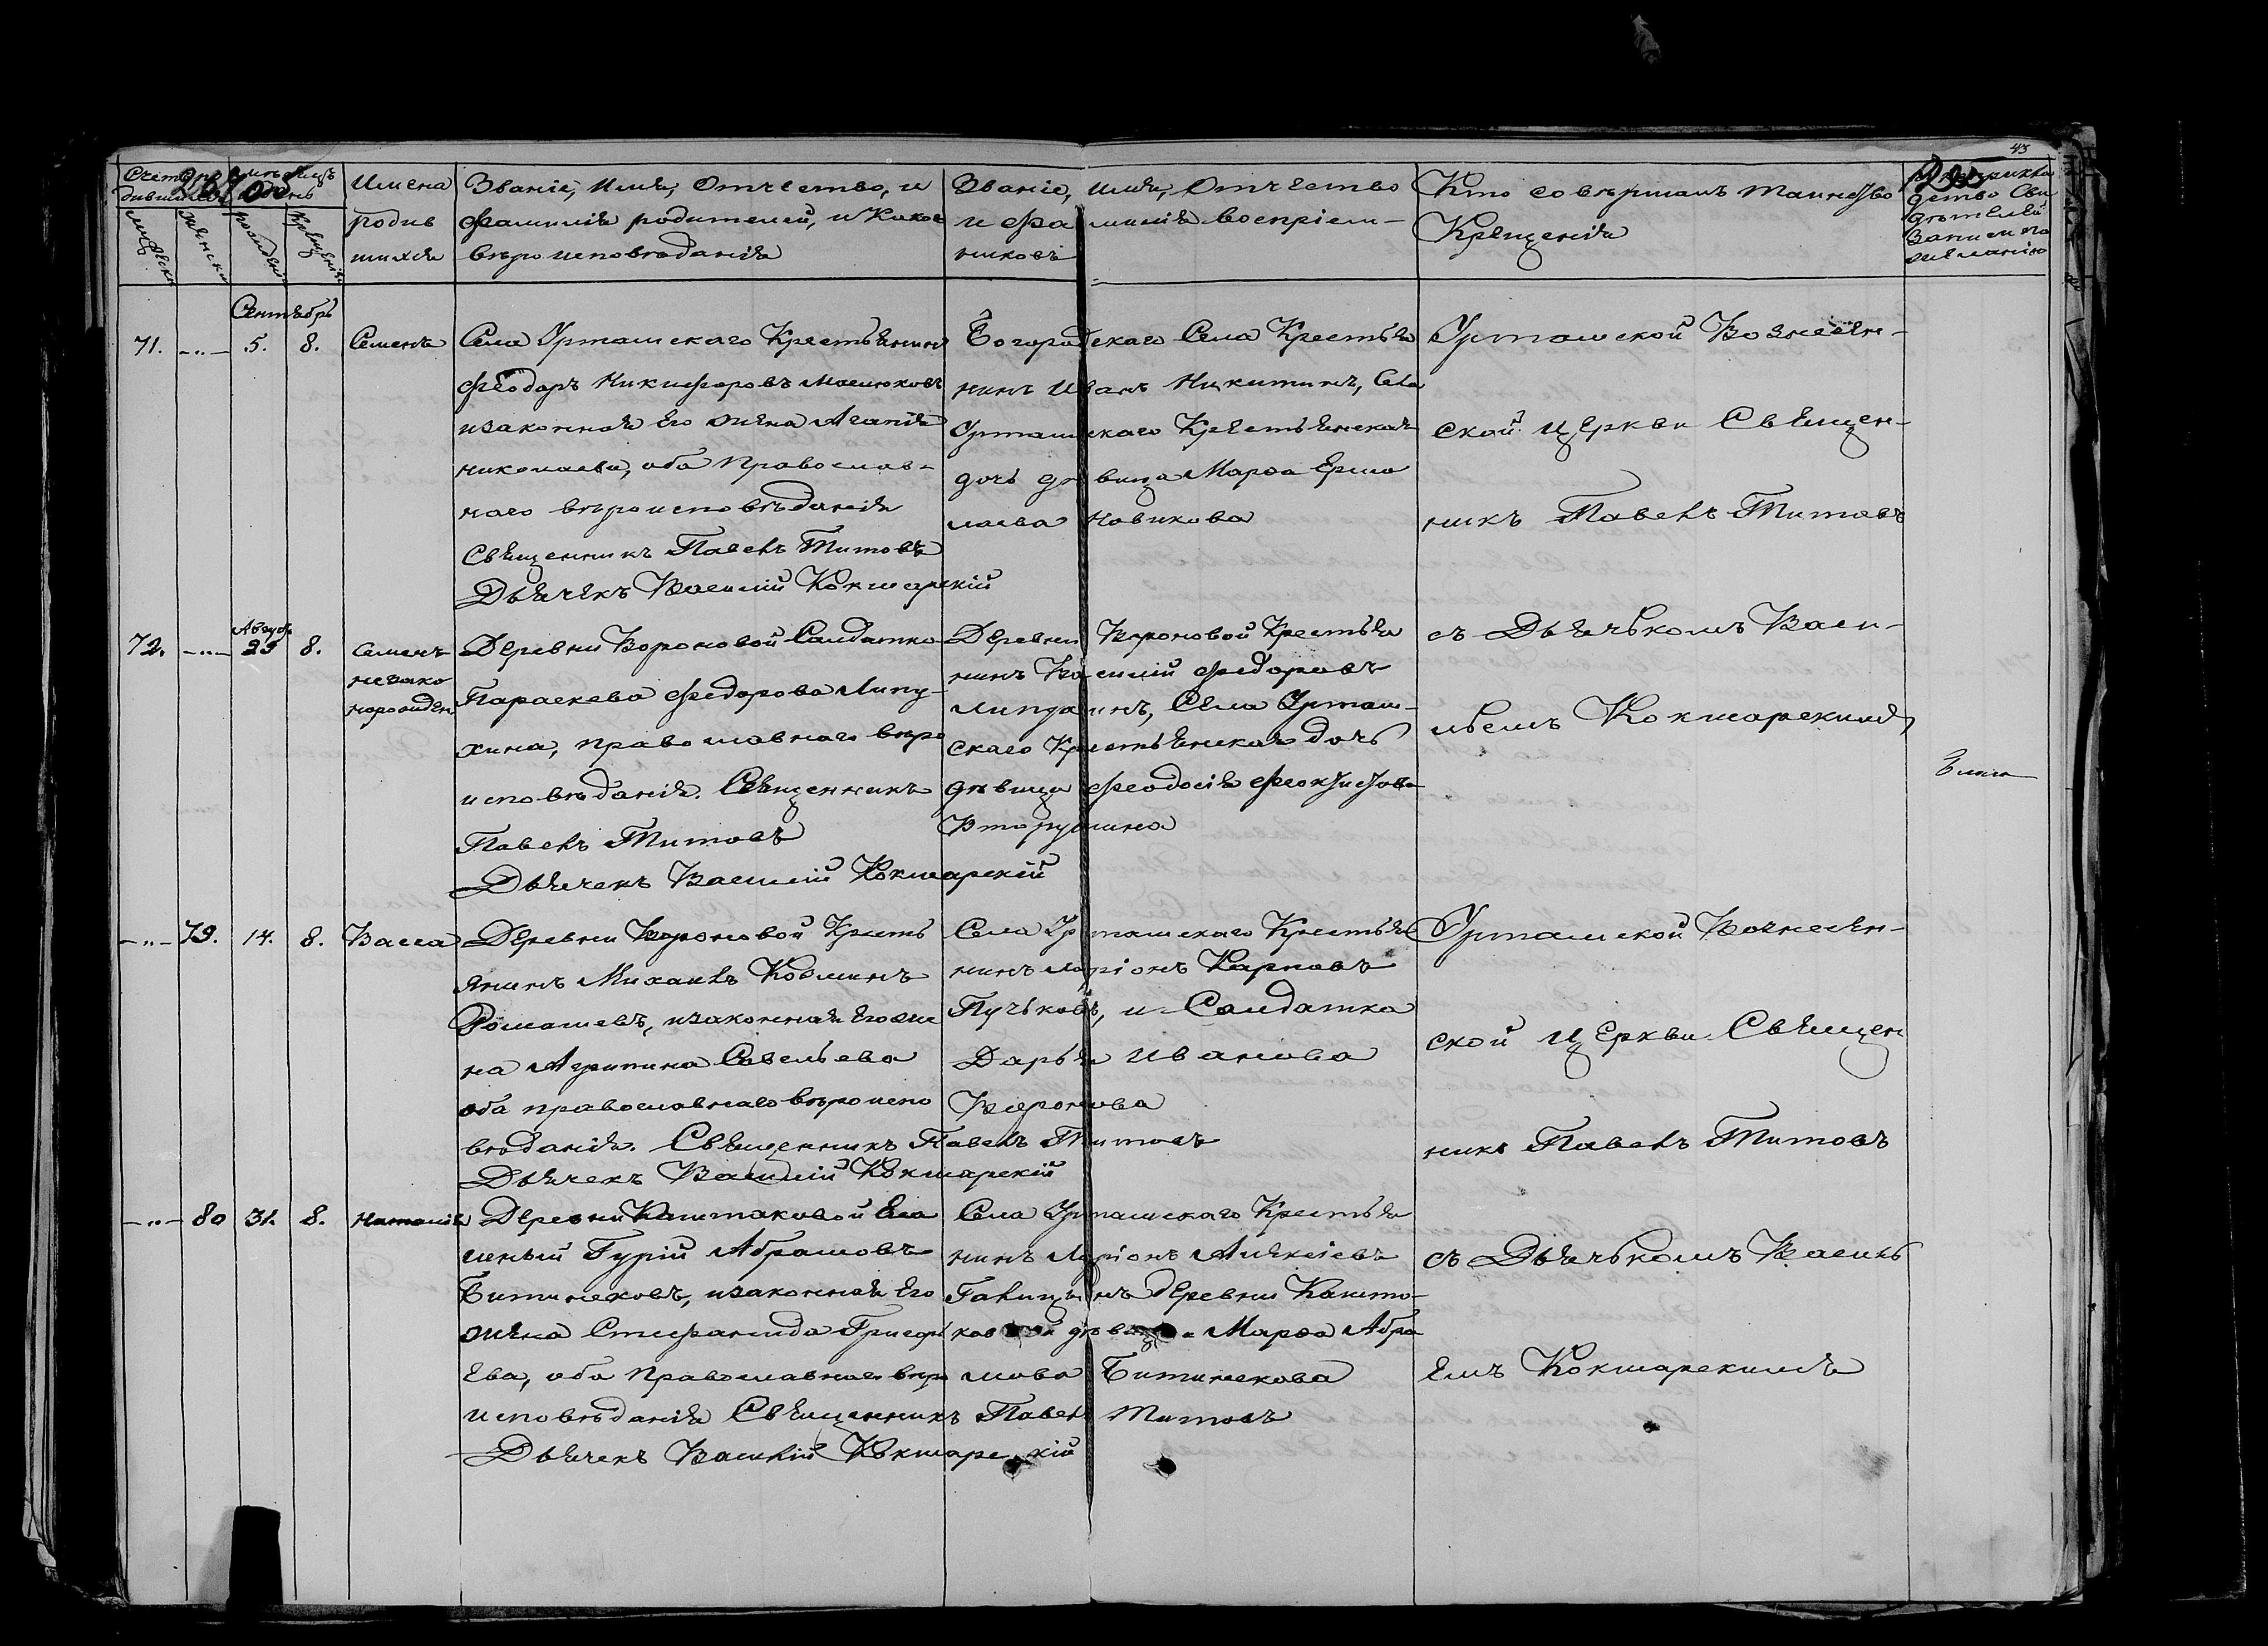 43
Имена
родив
шихся
Званіе, Имя, Отчество, и
фамилія родителей, и какова
вѣроисповѣданія
Званіе, имя, Отчество
и фамилія воспріем-
никовъ
Кто совершалъ таинство
Крещенія
Сентябрь
71. -"- 5. 8. Семенъ
Села Уртамскаго Крестьянинъ
Феодоръ Никифоровъ Маслюковъ
изаконная его жена Агапія
николаева, оба Православ-
наго вѣроисповѣданія
Священникъ Павелъ Титовъ
Дьячекъ Василій Кокшарскій
Богородскаго Села Крестья
нинъ Иванъ Никитинъ, Села
Уртамскаго Крестьянская
дочь дѣвица Марѳа Ермо
лаева Новикова
Уртамской Вознесен-
ской церкви Священ-
никъ Павелъ Титовъ
72. -"- Авгус. 25 8. Семенъ
незако
норожден.
Деревни Вороновой Салдатка
Параскева Федорова Липу-
хина, православнаго вѣро
исповѣданія. Священникъ
Павелъ Титовъ
Дьячекъ Василій Кокшарскій
Деревни Вороновой Крестья
нинъ Василій Федоровъ
Села Уртам-
скаго Крестьянская дочь
дѣвица Феодосія Феоктистова
Вторушина
съ Дьячькомъ Васи-
льемъ Кокшарскимъ
-"- 79. 14. 8. Васса
Деревни Вороновой Кресть
янинъ Михаилъ Козминъ
Ромашевъ, изаконная Его же
на Агрипина Савельева
оба православнаго вѣроиспо
вѣданія. Священникъ Павелъ Титовъ
Дьячекъ Василій Кокшарскій
Села Уртамскаго Крестья
нинъ Ларіонъ Карповъ
Пучьковъ, и Салдатка
Дарья Иванова
Воронова
Уртамской Вознесен-
ской Церкви Священ
никъ Павелъ Титовъ
-"- 80 31. 8. Наталія
Деревни Каштаковой Еса
шный Гурій Абрамовъ
Битинековъ, изаконная Его
жена Стефанида Григорь
Ева, оба Православнаго вѣро
исповѣданія Священникъ Павелъ Титовъ
Дьячекъ Василій Кокшарскій
Села Уртамскаго Крестья
нинъ Ларіонъ Алексіевъ
Галицынъ Деревни Кашта-
ковой дѣвица Марѳа Абра
мова Битинекова
съ Дьячькомъ Василь
Емъ Кокшарскимъ